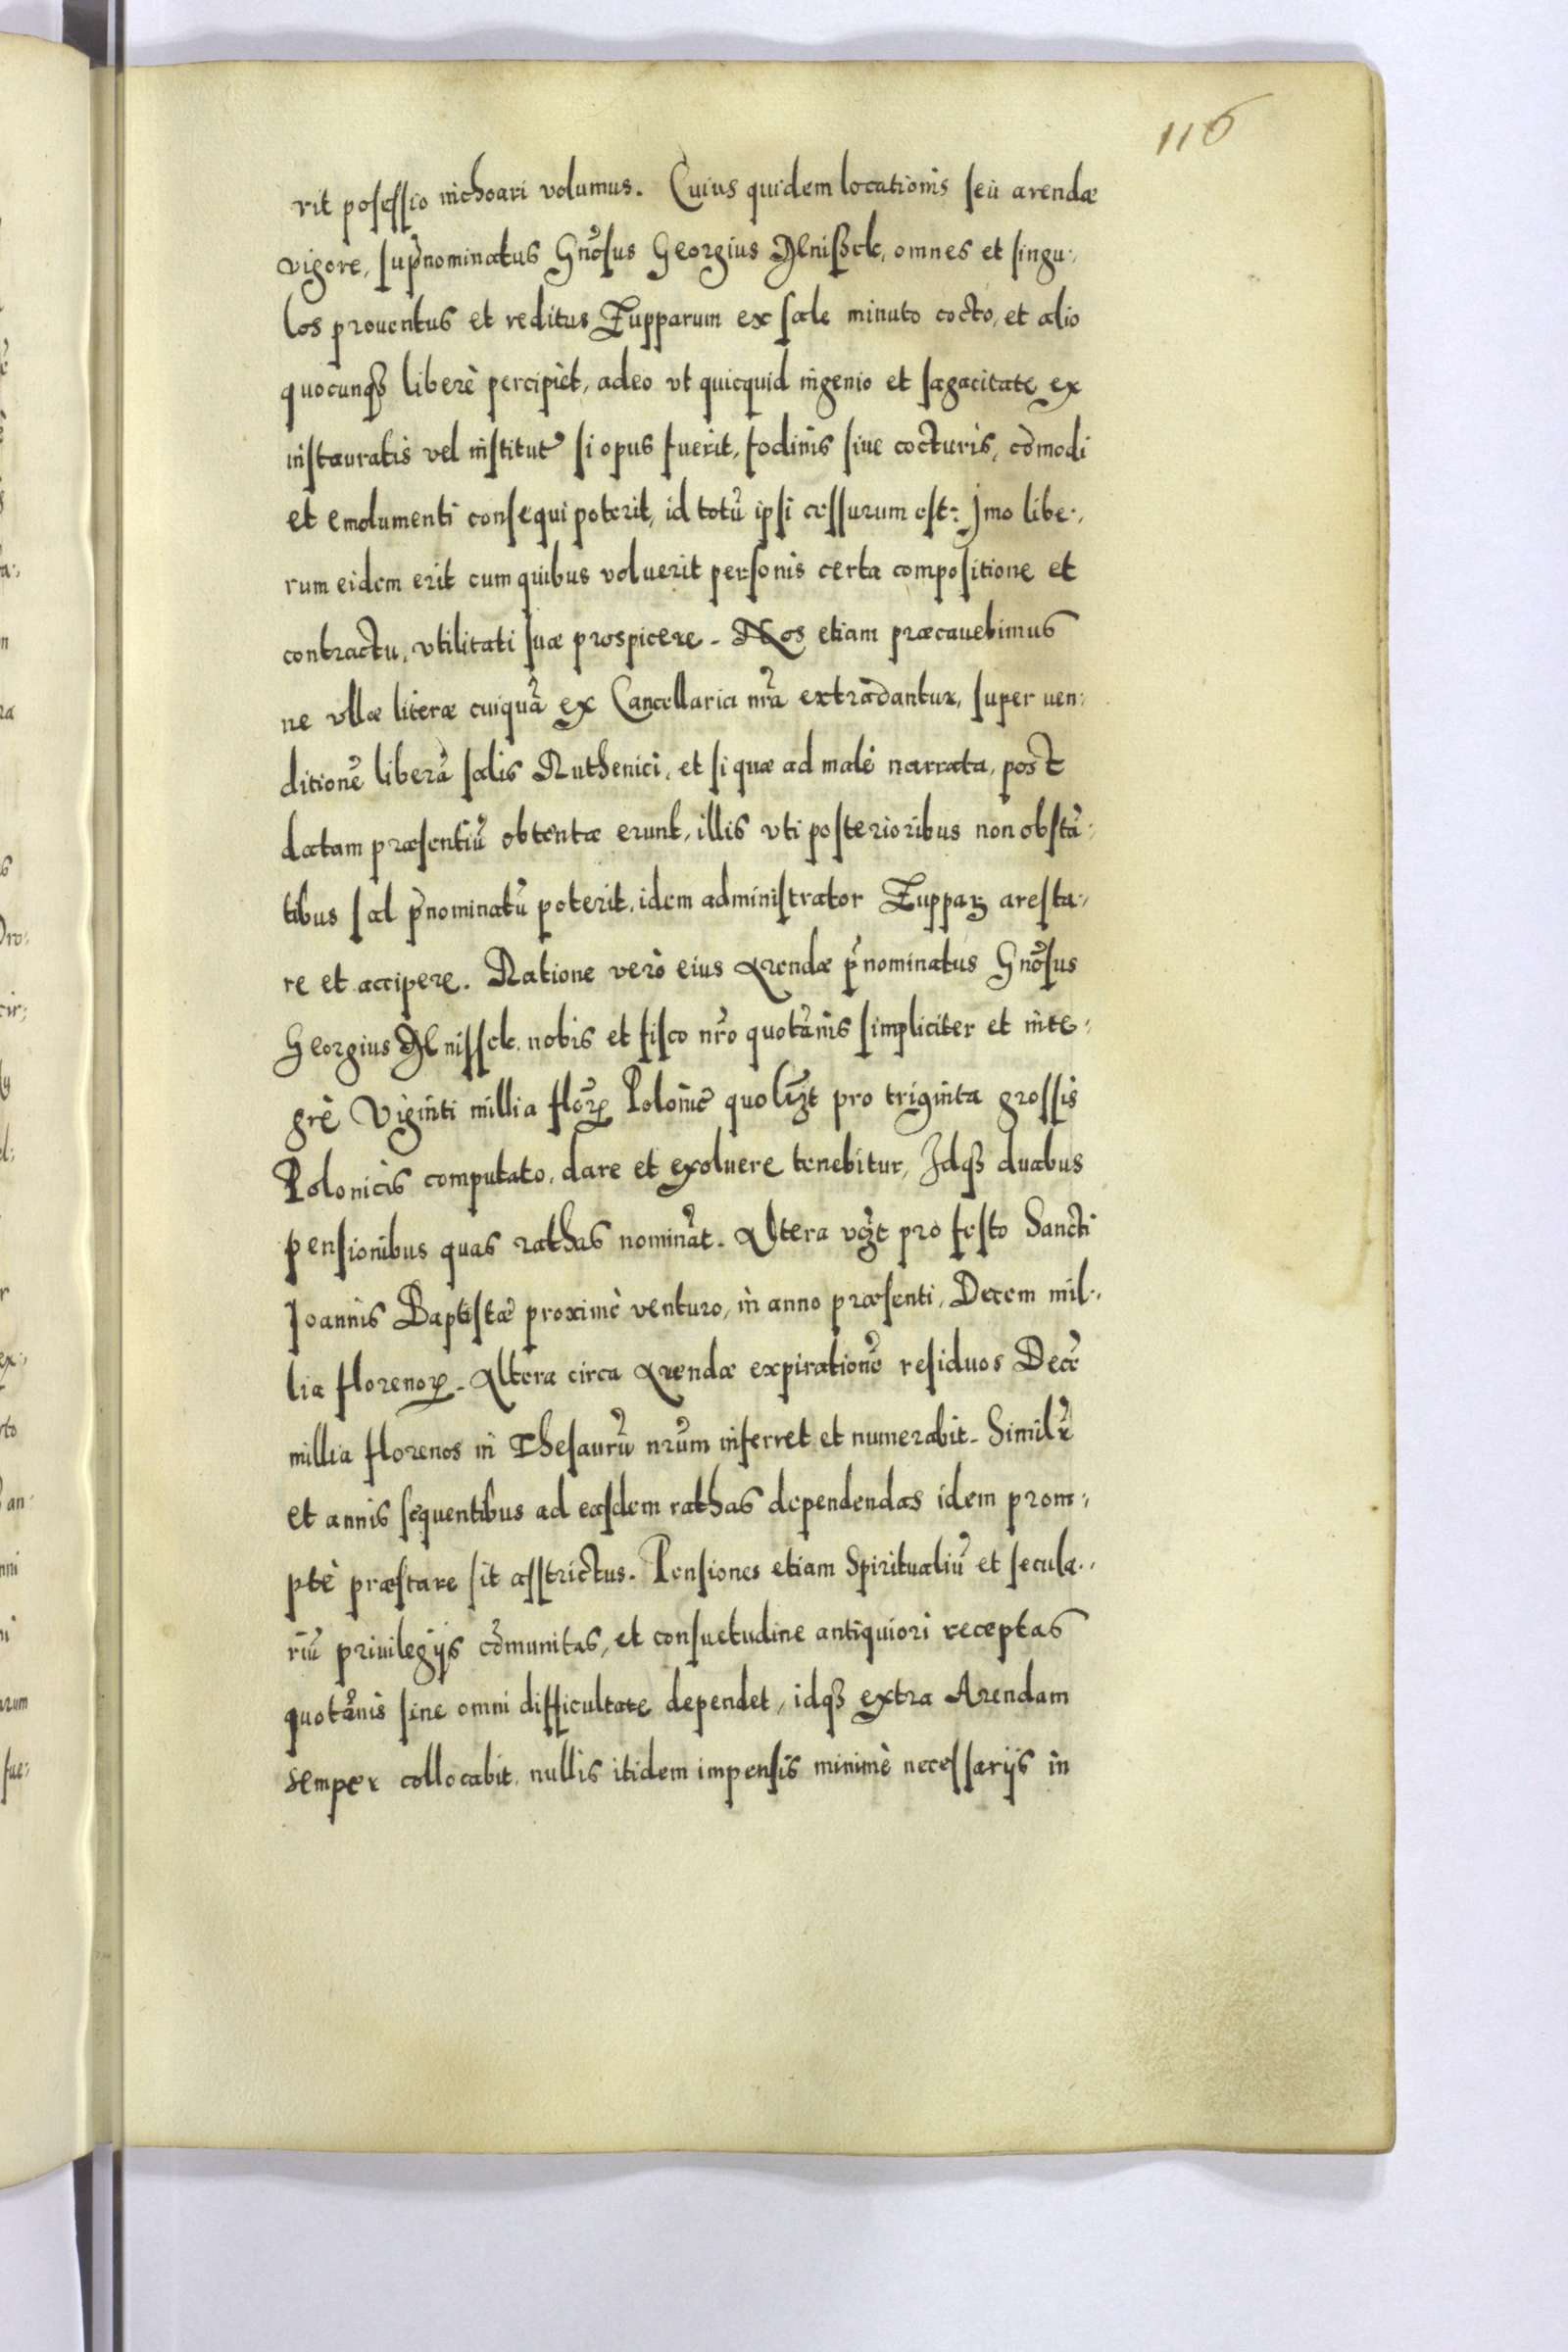 116
rit posessio inchoari volumus. Cuius quidem locationis seù arendæ
vigore, sup̃nominatus Gnõsus Georgius Jlnißck, omnes et singu-,
los prouentus et reditus Zupparum ex sale minuto cocto, et alio
quocunqꝫ liberè percipiet, adeo vt quicquid ingenio et sagacitate ex
instauratis vel institut᷒ si opus fuerit, fodinis siue cocturis, cõmodi
et emolumenti consequi poterit, id totũ ipsi cessurum est: Jmo libe-,
rum eidem erit cum quibus voluerit personis certa compositione et
contractu, vtilitati suæ prospicere. Nos etiam præcauebimus
ne vllæ literæ cuiquã ex Cancellaria nrã extradantur, super uen-
ditionẽ liberã salis Ruthenici, et si quæ ad malè narrata, post
datam præsentiũ obtentæ erunt, illis vti posterioribus non obstã-
tibus sal p̃nominatũ poterit, idem administrator Zuppaꝝ aresta-,
re et accipere. Ratione verò eius Arendæ p̃nominatus Gnõsus
Georgius Jlnissck nobis et fisco nrõ quotãnis simpliciter et inte-
grè Viginti millia florꝝ Polonic᷒ quolꝫt pro triginta grossis
Polonicis computato, dare et exoluere tenebitur, Jdqꝫ duabus
pensionibus quas rathas nominãt. Altera vꝫt pro festo Sancti
Joannis Baptistæ proximè venturo, in anno præsenti, Decem mil-,
lia florenoꝝ. Altera circa Arendæ expirationẽ residuos Decẽ
millia florenos in Thesaurũ nrũm inferret et numerabit. Similr̃
et annis sequentibus ad easdem rathas dependendas idem prom-,
ptè præstare sit asstrictus. Pensiones etiam Spiritualiũ et secula-,
riũ priuilegijs cõmunitas, et consuetudine antiquiori receptas
quotãnis sine omni difficultate dependet, idqꝫ extra Arendam
semper collocabit, nullis itidem impensis minimè necessarijs in